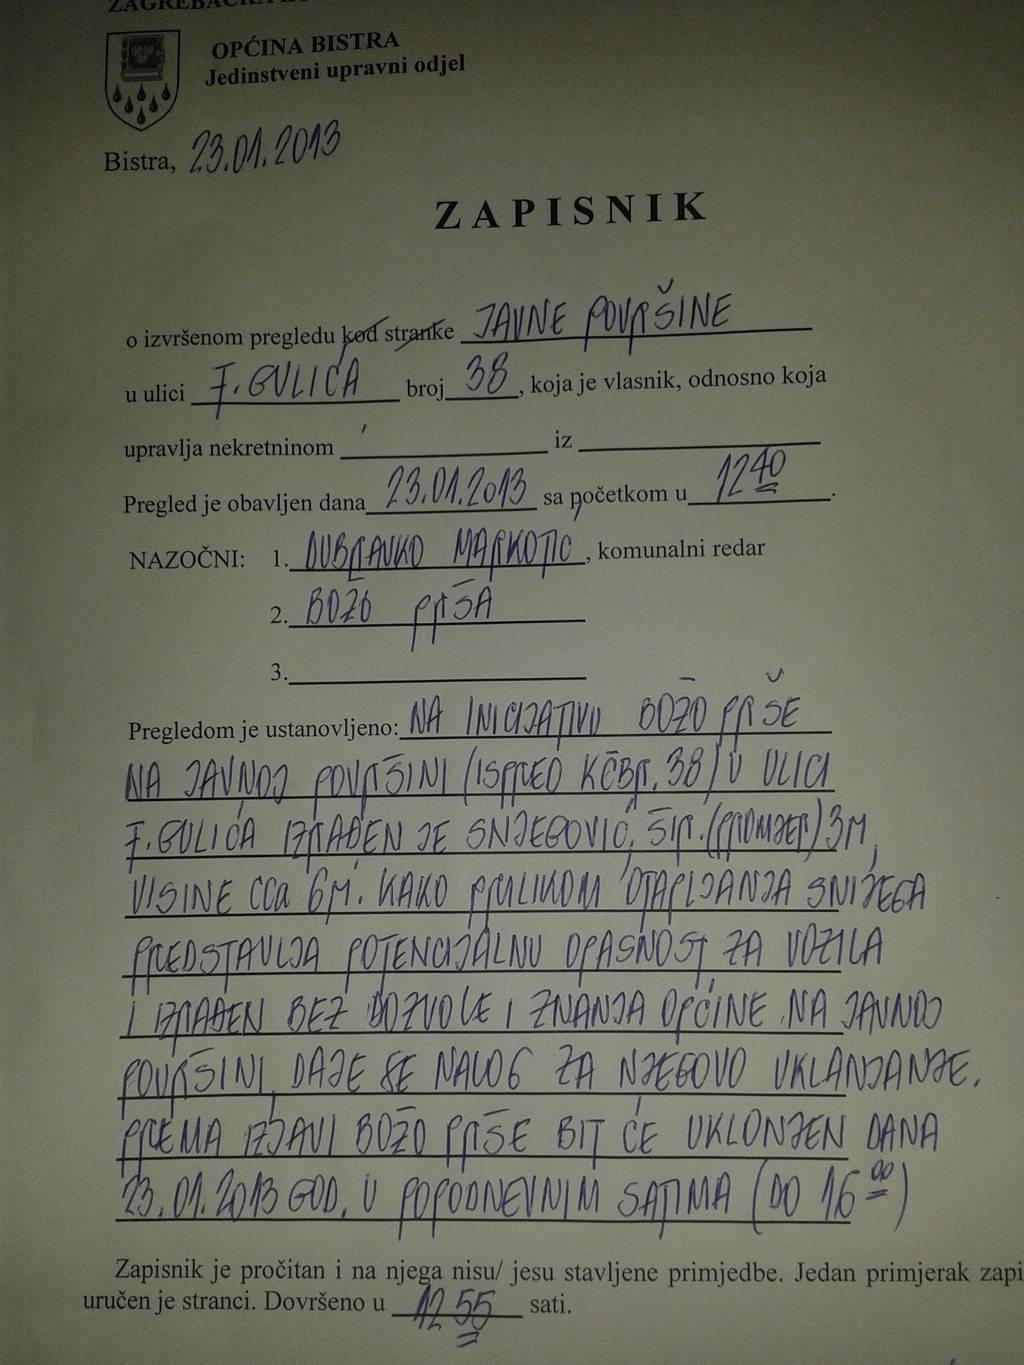 OPĆINA BISTRA
Jedinstveni upravni odjel
Bistra, 23.01.2013
ZAPISNIK
o izvršenom pregledu kod stranke JAVNE POVRŠINE
u ulici F. GULIĆA broj 38, koja je vlasnik, odnosno koja
upravlja nekretninom iz
Pregled je obavljen dana 23.01.2013 sa početkom u 12 40.
NAZOČNI: 1. DUBRAVKO MARKOTIĆ, komunalni redar
2. BOŽO PRŠA
3.
Pregledom je ustanovljeno: NA INICIJATIVU BOŽO PRŠE
NA JAVNOJ POVRŠINI (ISPRED KČBR. 38) U ULICI
F. GULIĆA IZRAĐEN JE SNJEGOVIĆ, ŠIR. (PROMJER) 3M,
VISINE CCa 6M. KAKO PRILIKOM OTAPLJANJA SNIJEGA
PREDSTAVLJA POTENCIJALNU OPASNOST ZA VOZILA
I IZRAĐEN BEZ DOZVOLE I ZNANJA OPĆINE NA JAVNOJ
POVRŠINI, DAJE SE NALOG ZA NJEGOVO UKLANJANJE.
PREMA IZJAVI BOŽO PRŠE BIT ĆE UKLONJEN DANA
23.01.2013 GOD. U POPODNEVNIM SATIMA (DO 16 00)
Zapisnik je pročitan i na njega nisu/ jesu stavljene primjedbe. Jedan primjerak zapi
uručen je stranci. Dovršeno u 12 55 sati.